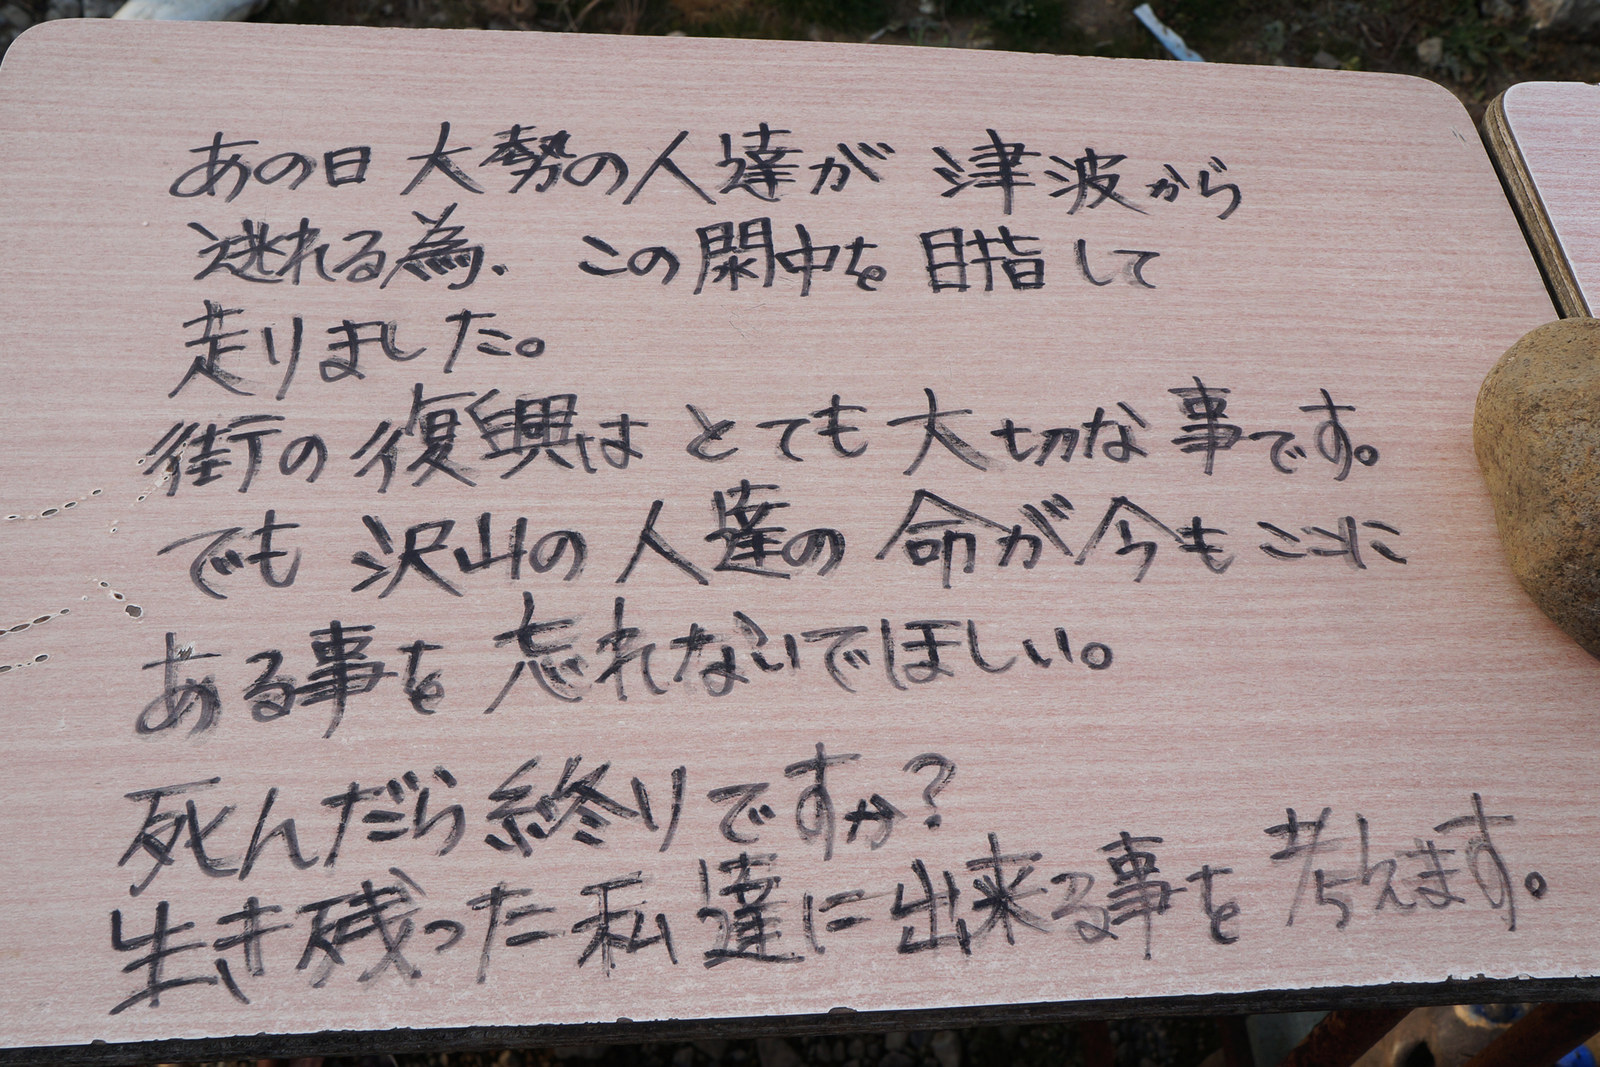 あの日 大勢の人達が 津波から
逃れる為、この閖中を 目指して
走りました。
街の復興は とても大切な事です。
でも 沢山の人達の 命が今も ここに
ある事を 忘れないでほしい。
死んだら終りですか?
生き残った私達に出来る事を 考えます。